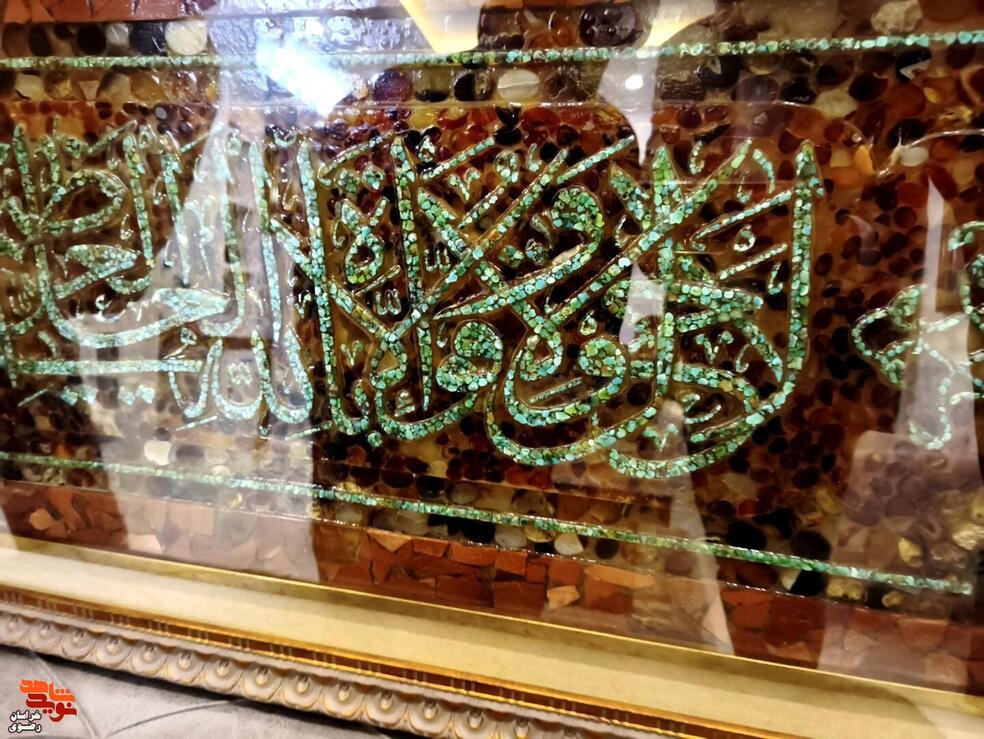 لا حول ولا قوة الا بالله العلي العظيم
نوید شاهد
خراسان
رضوی